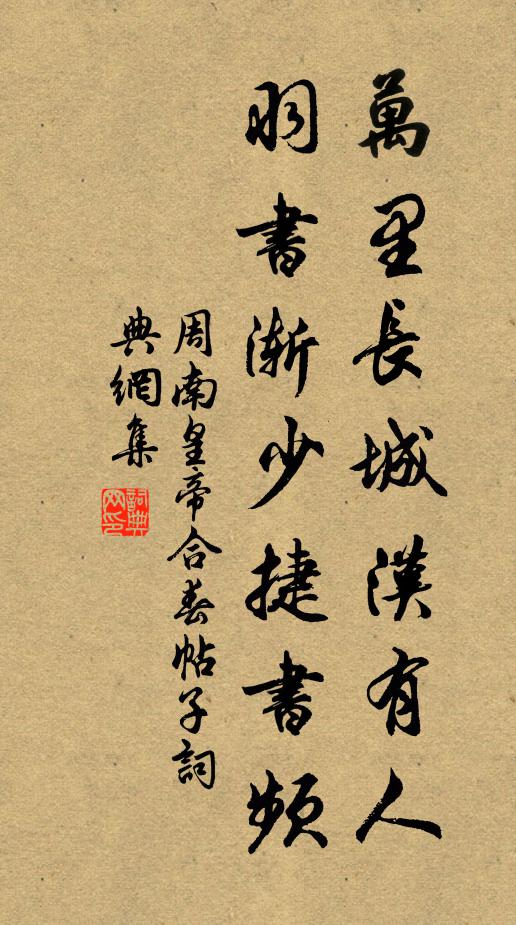 萬里長城漢有人
羽書漸少捷書頻
周南皇帝合春帖子詞
典網集
詞典網印